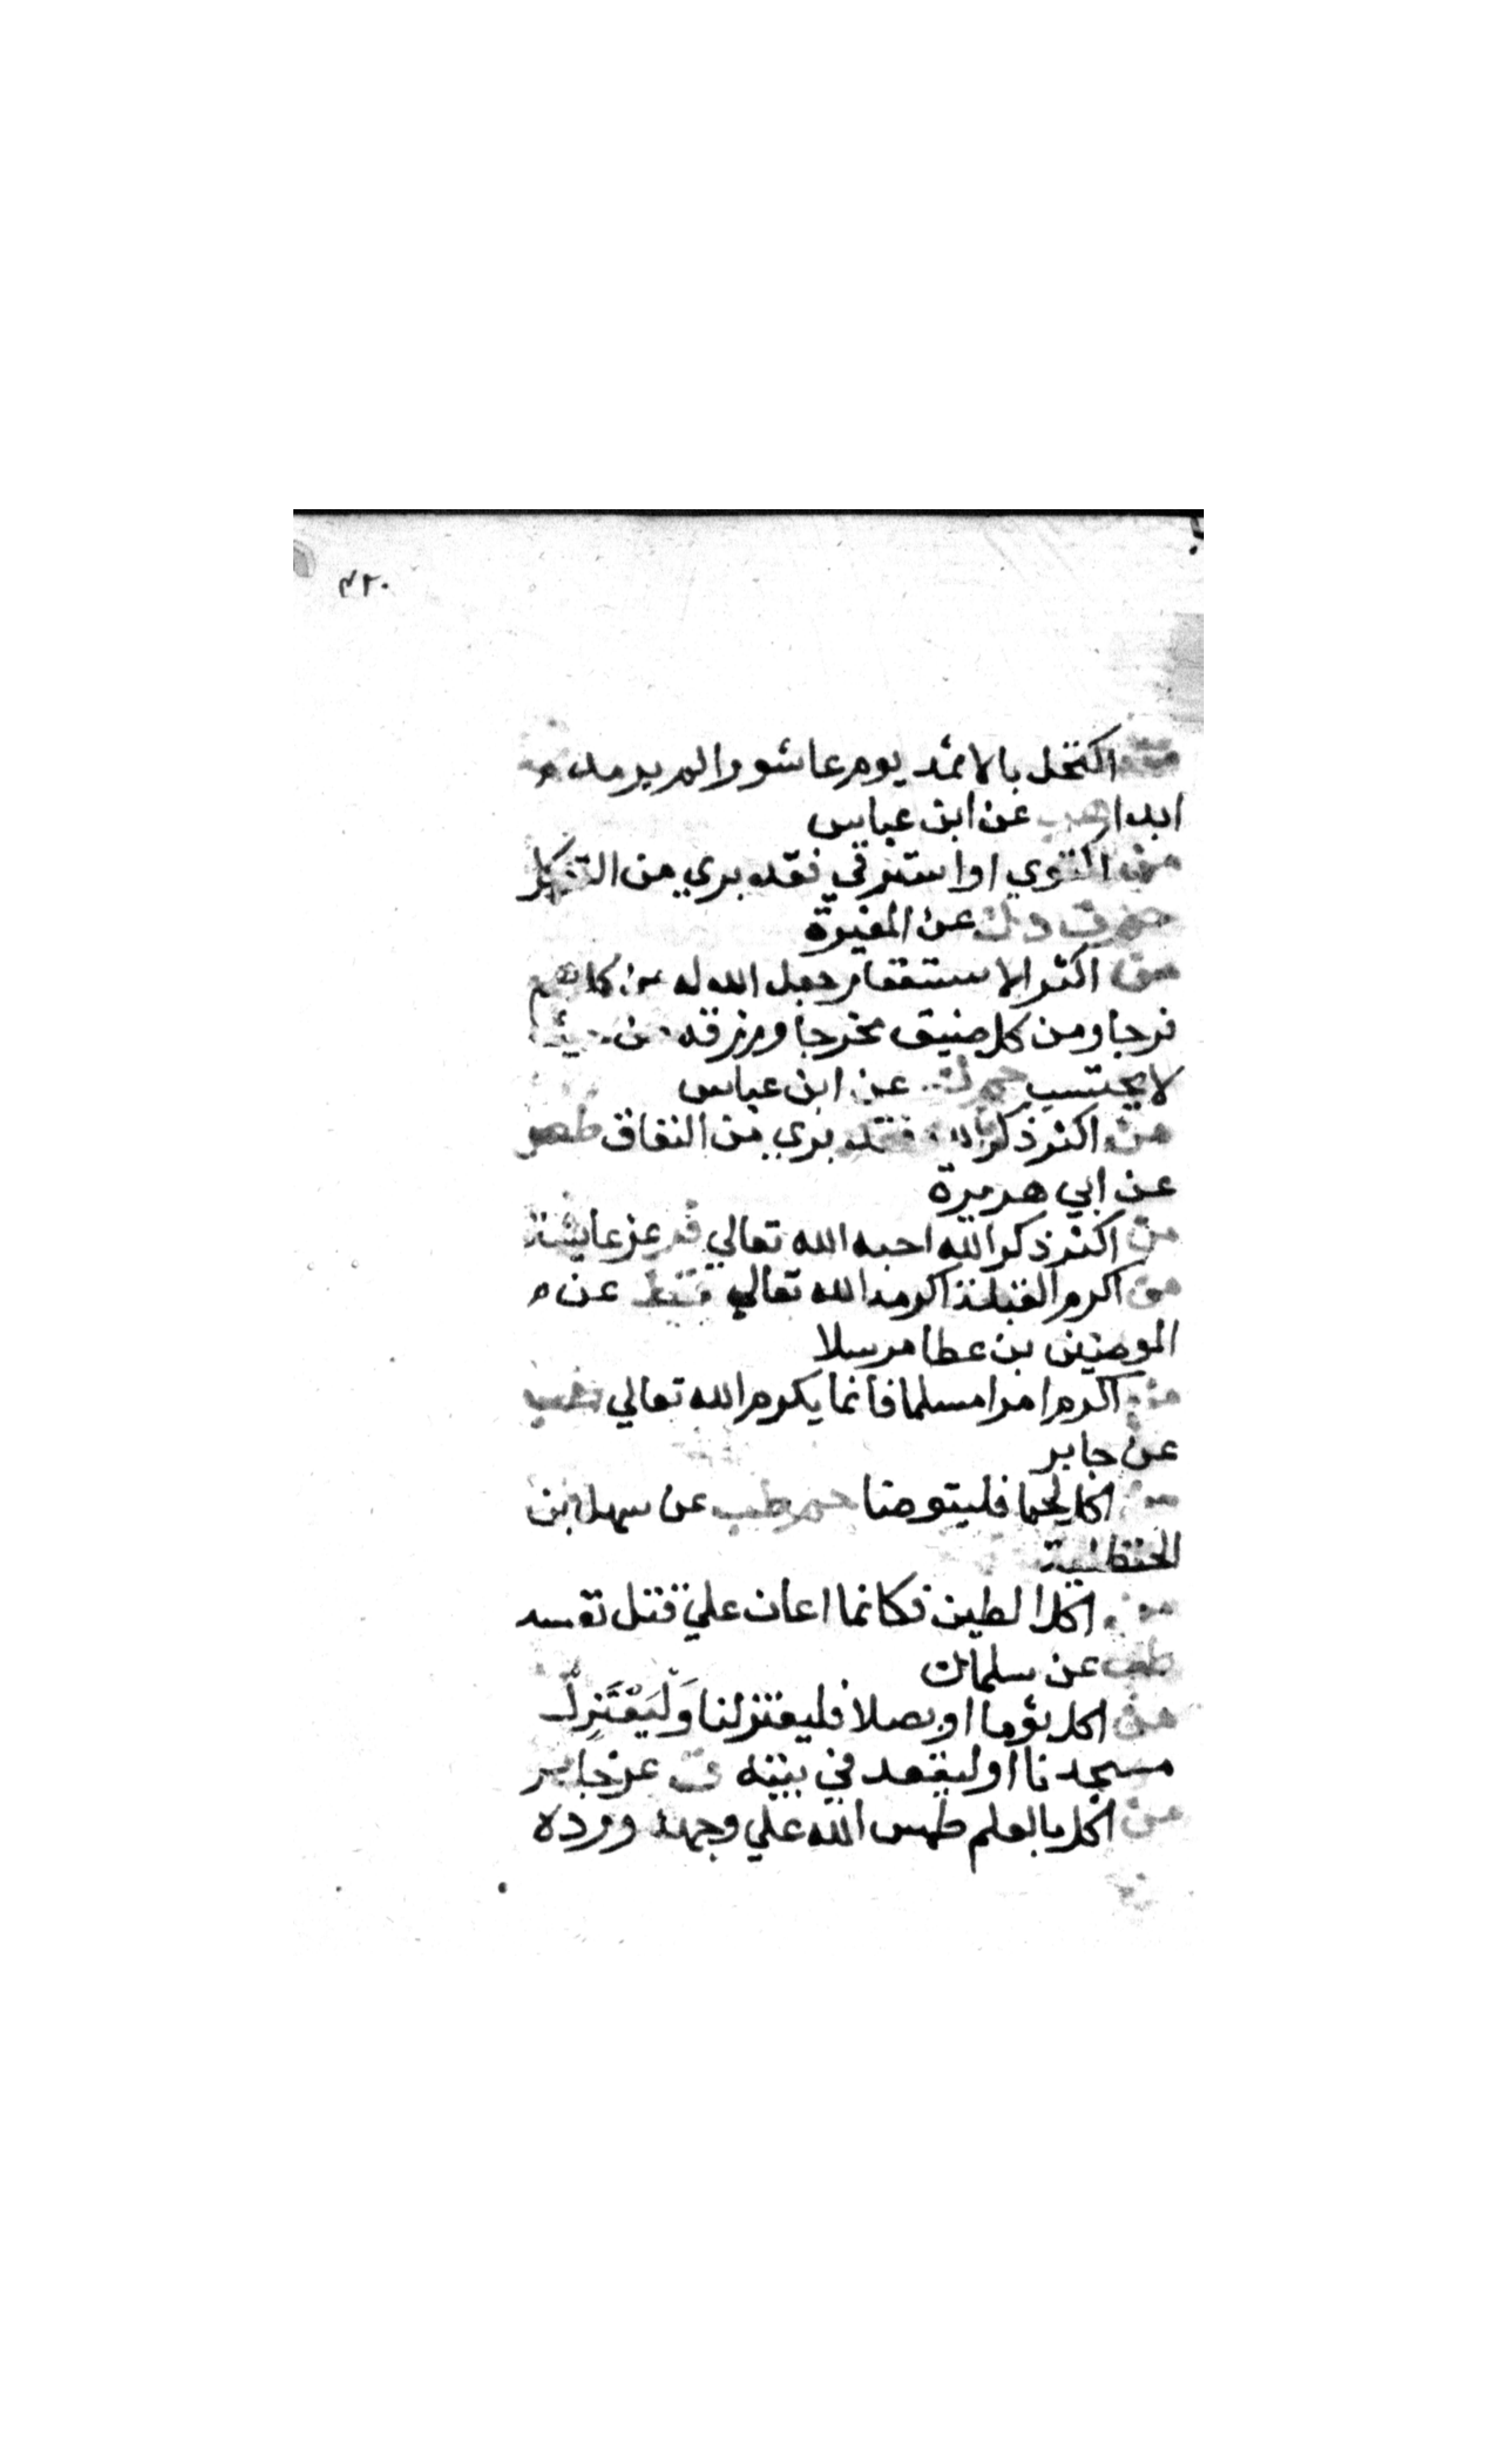 ٤٢٠
من اكتحل بالاثمد يوم عاشورا لم يرمد
ابدا هب عن ابن عباس
من اكتوي او استرقي فقد بري من التوكل
حم ت ه ك عن المغيرة
من اكثر الاستغفار جعل الله له من كل هم
فرجا ومن كل ضيق مخرجا ورزقه من حيث
لا يحتسب حم ك عن ابن عباس
من اكثر ذكر الله فقد بري من النفاق طص
عن ابي هريرة
من اكثر ذكر الله احبه الله تعالي فر عن عايشة
من اكرم القبلة اكرمه الله تعالي قط عن
الوضين بن عطا مرسلا
من اكرم امرا مسلما فانما يكرم الله تعالي
عن جابر
من اكل لحما فليتوضا حم طب عن سهل بن
الحنظلية
من اكل الطين فكانما اعان علي قتل نفسه
طب عن سلمان
من اكل ثوما او بصلا فليعتزلنا وَلْيَعْتَزِلْ
مسجدنا او ليقعد في بيته ق عن جابر
من اكل بالعلم طمس الله علي وجهه ورده